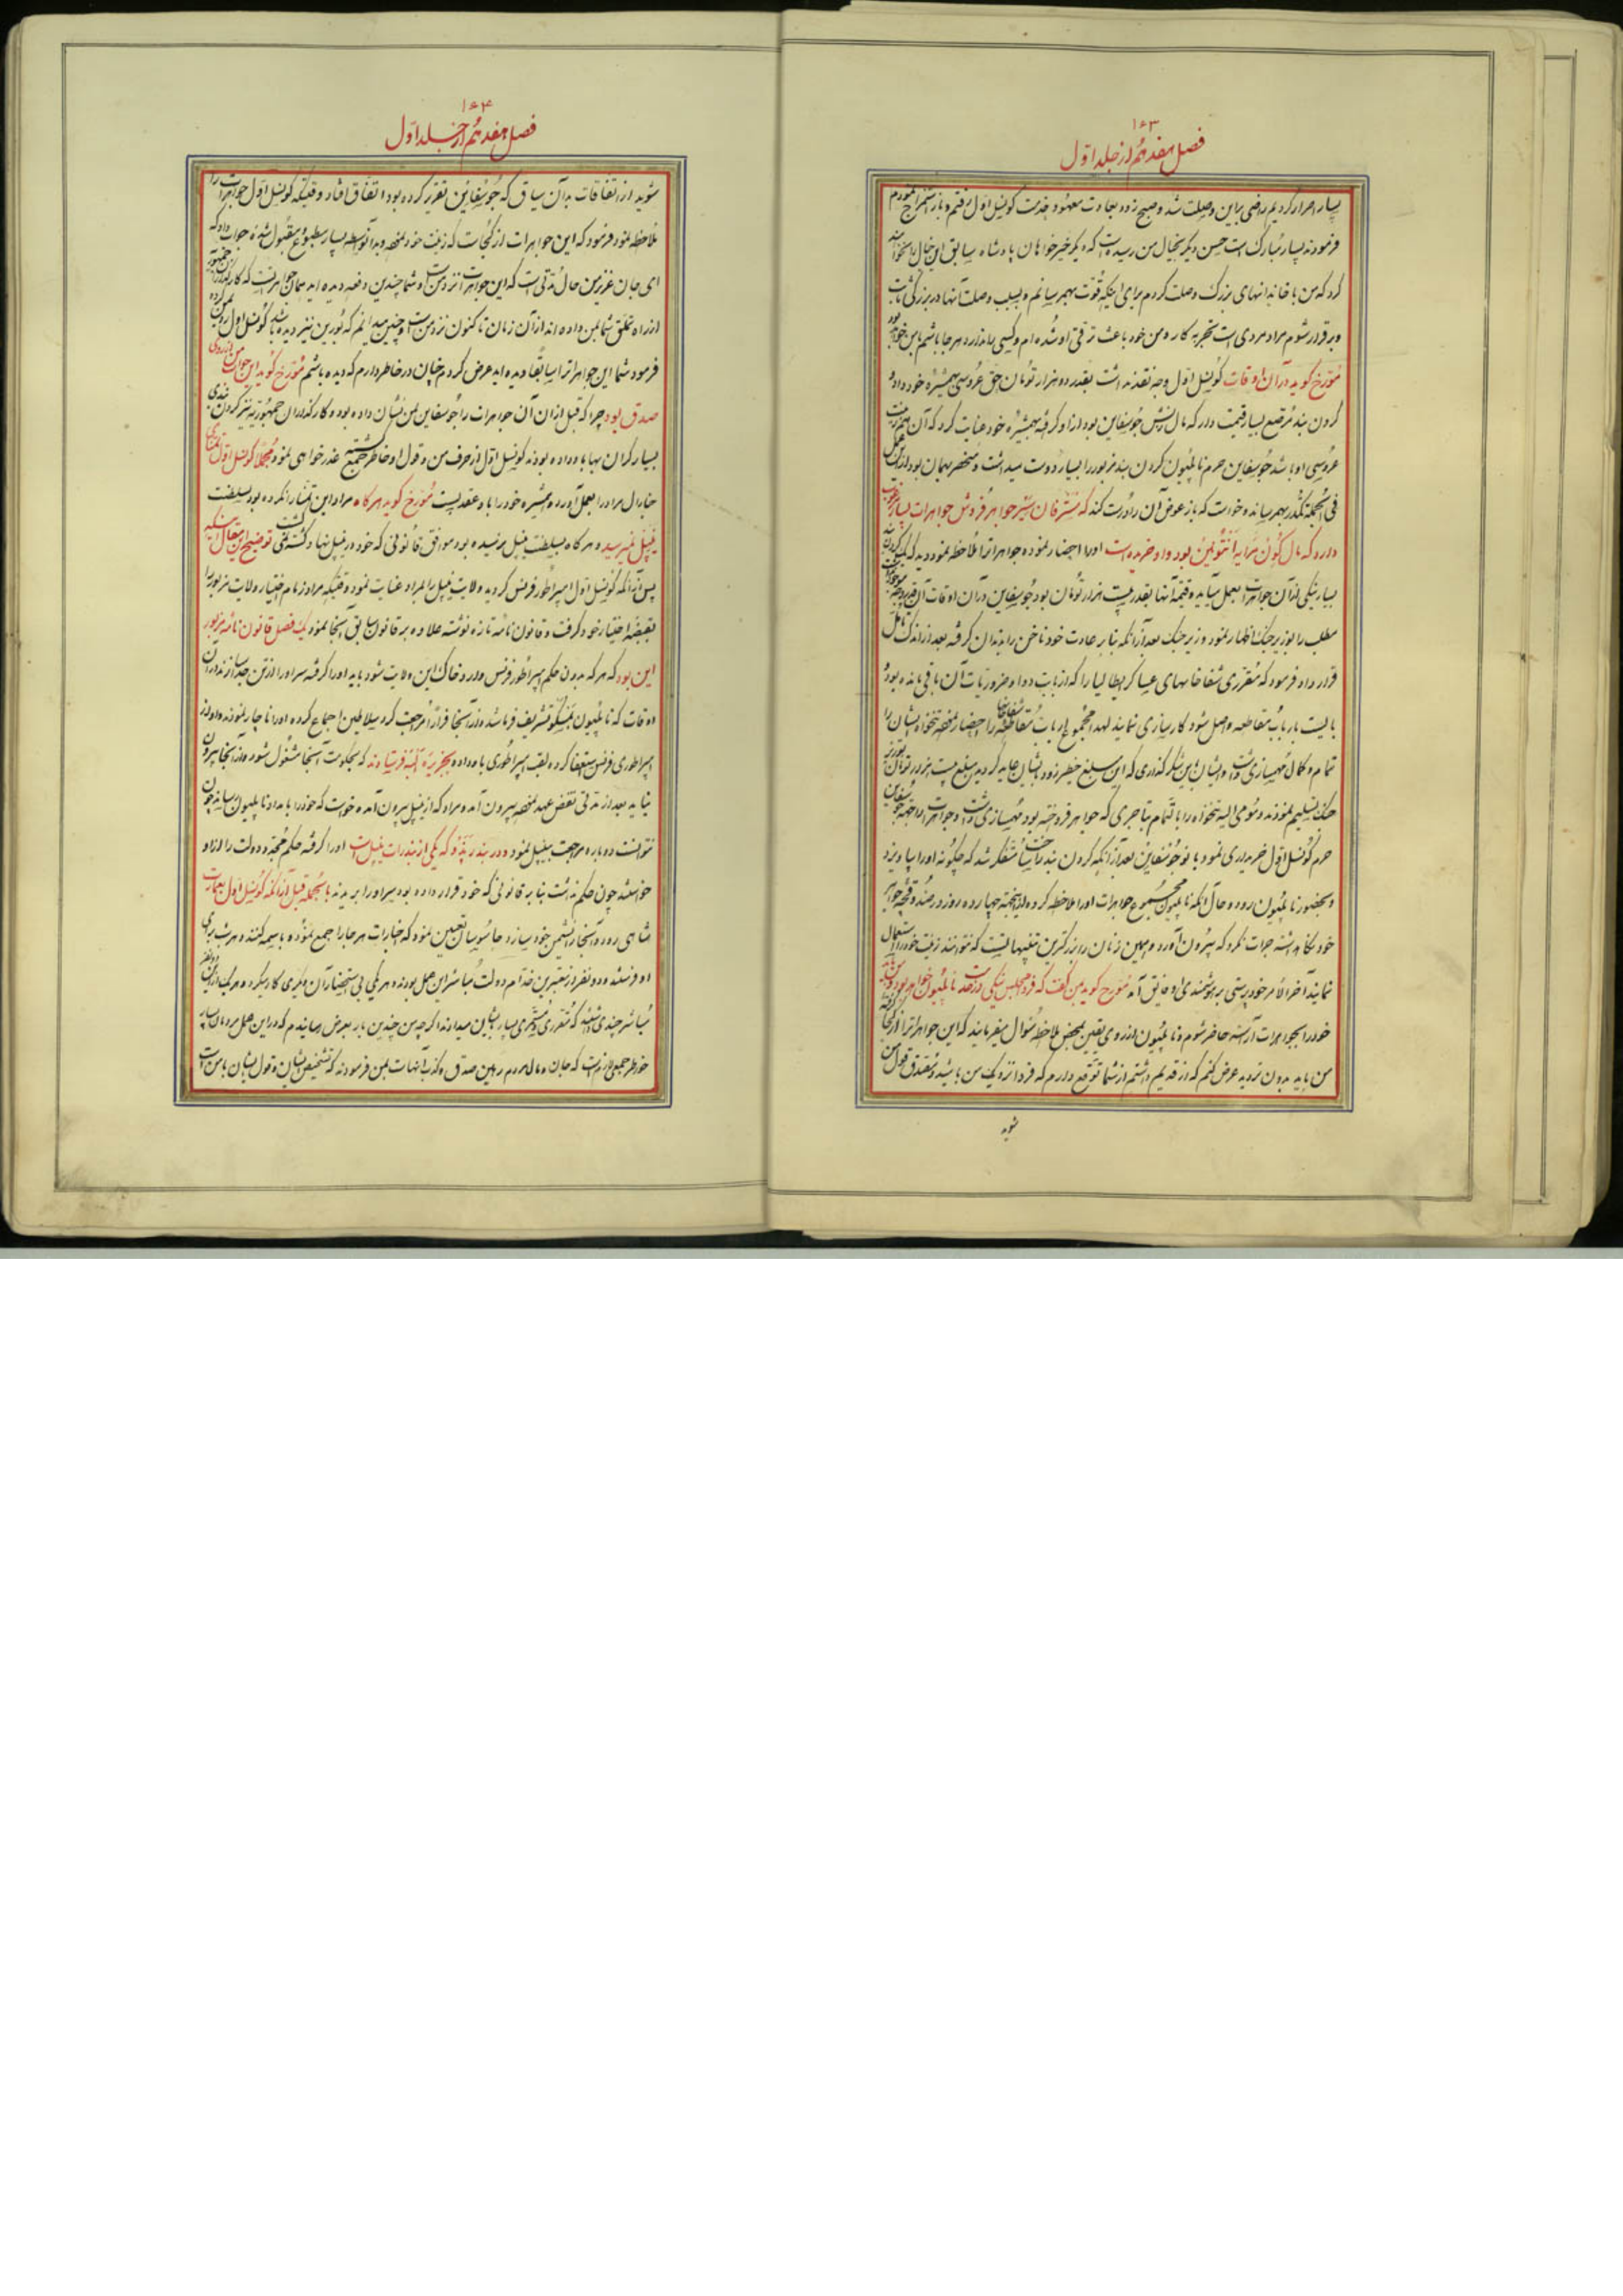 ۱۶۳
فصل هفدهم از جلد اوّل
بسیار اصرار کردیم راضی براین وصلت شد و صبح زود بعادت معهود بخدمت کونسل اوّل رفتم و باز استمزاج نمودم
فرمودند بسیار مبارک است حسن دیگر بخیال من رسیده است که دیگر خیرخواهان پادشاه سابق این خیال را نخواهند
کرد که من با خاندانهای بزرک وصلت کردم برای اینکه قوت بهم رسانم و بسبب وصلت آنها در بزرگی ثابت
و برقرار شوم مراد مردی است تجربه کار و من خود باعث ترقی او شده ام و کسی را ندارد هرجا باشم با من خواهد بود
مورّخ گوید در آن اوقات کونسل اوّل وجه نقد نداشت بقدر ده هزار تومان حق عروسی همشیره خود داد و
گردن بند مرصع بسیار قیمت دار که مال زنش جوسفاین بود از او گرفته بهمشیره خود عنایت کرد که آن هم زینت
عروسی او باشد جوسفاین حرم ناپلیون گردن بند مزبور را بسیار دوست میداشت و منحصر بهمان بود از این عمل
فی الجمله تکدر بهم رسانده خواست که باز عوض آن را درست کند که مستر فان سیر جواهر فروش جواهرات بسیار مرغوب
دارد که مال کوئن مرایه انتوئین بود و او خریده است او را احضار نموده جواهر آنرا ملاحظه نمودید که یک گردن بند
بسیار نیکی از آن جواهرات بعمل میآید و قیمة آنها بقدر بیست هزار تومان بود جوسفاین در آن اوقات آن قدر وجه موجود نداشت
مطلب را بوزیر جنک اظهار نمود وزیر جنک بعد از آنکه بنا بر عادت خود ناخن را بدندان گرفته بعد از اندک تامل
قرار داد فرمود که مقرری شفاخانهای عساکر ایطالیا را که از بابت دوا و ضروریات آن باقی مانده بود
بایست بارباب مقاطعه واصل شود کارسازی نمایند لهذا مجموع ارباب مقاطعه شفاخانها را احضار نمود تنخواه ایشان را
تمام و کمال مهیسازی داشت و ایشان این شکر گذاری که این مبلغ خطیر زود بایشان عاید گردید مبلغ بیست هزار تومان بوزیر
جنک تسلیم نمودند و مومی الیه تنخواه را بالتمام بتاجری که جواهر فروخته بود مهیسازی داشت و جواهرات را بجهة جوسفاین
حرم کونسل اوّل خریداری نمود بانو جوسفاین بعد از آنکه گردن بند را ساخت متفکر شد که چگونه او را بیاویزد
و بحضور ناپلیون رود و حال آنکه ناپلیون مجموع جواهرات او را ملاحظه کرده لهذا بجهة چهارده روز در صندوقچه جواهر
خود نگاه داشته جرات نکرد که بیرون آورد و همین زنان را بزرگترین تنبیهات است که نتوانند زینت خود را استعمال
نمایند آخرالامر خودپرستی بر هوشمندی او فایق آمد مورّخ گوید بمن گفت که فردا مجلس نیکی در خدمت ناپلیون خواهد بود و من باید
خود را بجواهرات آراسته حاضر شوم و ناپلیون از روی یقین بمحض ملاحظه سئوال میفرمایند که این جواهر را از کجا گرفته
من باید بدون تردید عرض کنم که از قدیم داشتم از شما توقع دارم که فردا نزدیک من باشید و مصدق قول من
شوید
۱۶۴
فصل هفدهم از جلد اوّل
شوید از اتفاقات بدآن سیاق که جوسفاین تقریر کرده بود اتفاق افتاد وقتیکه کونسل اوّل جواهرات را
ملاحظه نمود فرمود که این جواهرات از کجاست که زینت خود نموده بدانواسطه بسیار مطبوع و مقبول شده جواب داد که
ای جان عزیز من حال مدّتی است که این جواهرات نزد من است و شما چندین دفعه دیده اید همان جواهریست که کارگذاران جمهور
از راه تملق شما بمن داده اند از آن زمان تا کنون نزد من است و چنین میدانم که بورین نیز دیده باشد کونسل اوّل رو بمن کرده
فرمود شما این جواهر را سابقا دیده اید عرض کردم چنان در خاطر دارم که دیده باشم مورّخ گوید این جواب من از روی
صدق بود چرا که قبل از آن آن جواهرات را جوسفاین بمن نشان داده بود و کارگذاران جمهوریه نیز گردن بندی
بسیار گران بها باو داده بودند کونسل اوّل از حرف من و قول او خاطر جمع گشته عذر خواهی نمود مجملا کونسل اوّل تمنای
جنارال مراد را بعمل آورده همشیره خود را باو عقد بست مورّخ گوید هرگاه مراد این تمنا را نکرده بود بسلطنت
نیپل نمیرسید و هرگاه بسلطنت نیپل نرسیده بود موافق قانونی که خود در نیپل نهاد کشته نمی گشت توضیح این مقال اینکه
پس از آنکه کونسل اوّل امپراطور فرنس گردید ولایت نیپل را بمراد عنایت نمود وقتیکه مراد زمام اختیار ولایت مزبور را
بقبضهٔ اختیار خود گرفت و قانون نامهٔ تازه نوشته علاوه بر قانون سابق آنجا نمود یک فصل قانون نامهٔ مزبور
این بود که هر که بدون حکم امپراطور فرنس وارد خاک این ولایت شود باید او را گرفته سر او را از تن جدا سازند در آن
اوقات که ناپلیون بمسکو تشریف فرما شده از آنجا فرارا مراجعت کرد سلاطین اجماع کرده او را ناچار نمودند و او از
امپراطوری فرنس استعفا کرده لقب امپراطوری باو داده بجزیرهٔ البه فرستادند که بحکومت آنجا مشغول شود و از آنجا بیرون
نیاید بعد از مدّتی نقض عهد نموده بیرون آمد و مراد که از نیپل بیرون آمده خواست که خود را بامداد ناپلیون رساند چون
نتوانست دوباره مراجعت بنیپل نمود و در بندر پذو که یکی از بندرات نیپل است او را گرفته حکم مجدّد دولت را از او
خواستند چون حکم نداشت بنا بر قانونی که خود قرار داده بود سر او را بریدند بالجمله قبل از آنکه کونسل اوّل بعمارت
شاهی رود و آنجا را نشیمن خود سازد جاسوسان تعیین نمود که اخبارات هر جا را جمع نموده باسمه کنند و هر شب برای
او فرستند و دو نفر از معتبرین خدّام دولت مباشر این عمل بودند و هر یکی بی استحضار آن دیگری کار میکرد و هر یک از این دو نفر
مباشر چندی داشتند که مقرری و مستمری بسیار بایشان میدادند اگرچه من چندین بار بعرض رساندم که در این عمل مردمان بسیار
خواطر جمعی لازم است که جان و مال مردم رهین صدق و کذب آنهاست بمن فرمودند که تشخیص ایشان و قول ایشان با من است